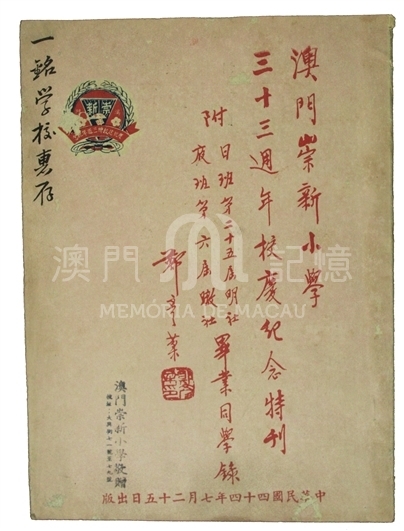 澳門崇新小學
三十三週年校慶紀念特刊
附
日班第二十五屆明社
夜班第六屆暾社
畢業同學錄
鄭彥棻
一銘學校惠存
崇新
澳門崇新小學敬贈
中華民國四十四年七月二十五日出版
澳門記憶
MEMÓRIA DE MACAU